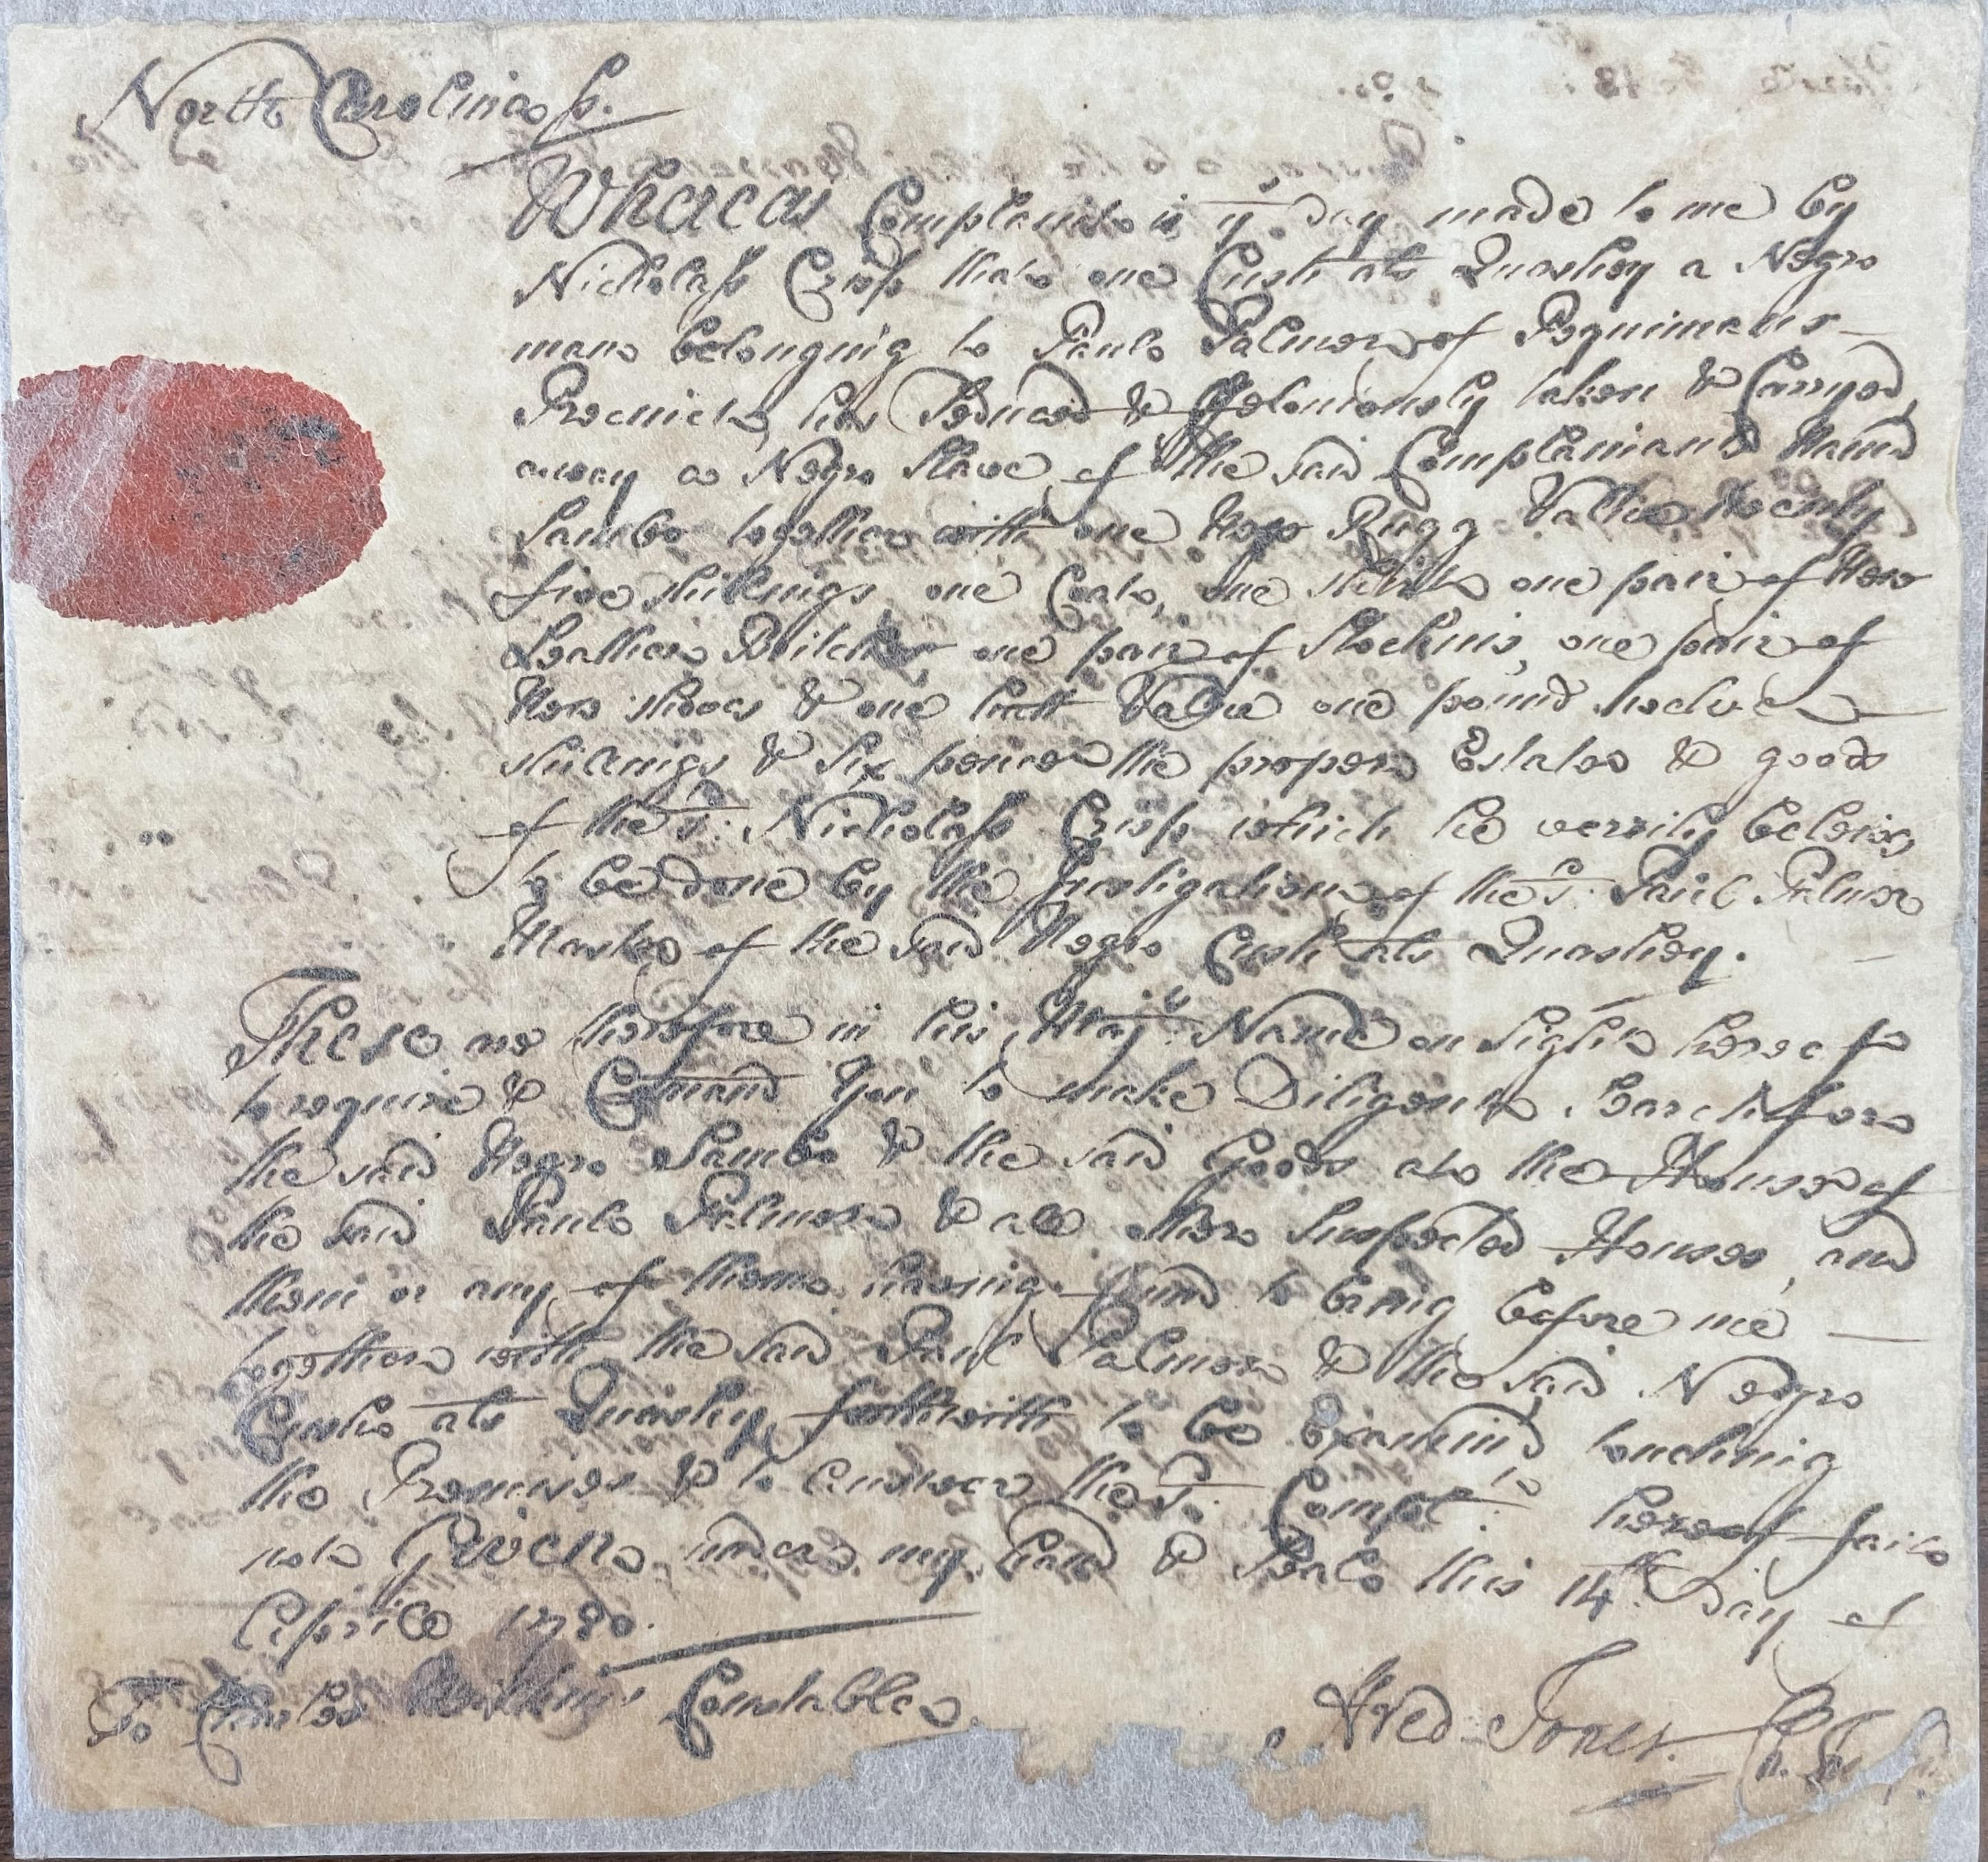 North Carolina ss.
Whereas Complaint is ye. Day made to me by
Nicholass Crisp that one Cush als Quashey a Negro
man belonging to Paul Palmer of Pequimans
Precinct, has Seduced & Feloniously taken & Carryed
away a Negro Slave of the said Complainant Named
Sambo together with one New Rugg Vallue twenty
five shillings one Coat, one shirt one pair of New
Leather Britches one pair of Stockins, one pair of
New shooes & one hatt Value one pound twelve
shillings & six pence the proper Estate & goods
of the sd. Nicholass Crisp which he verrily beleives
to be done by the Instigation of the sd. Paul Palmer
Master of the said Negro Cush als Quashey.
These are therefore in his Majties. Name on Sight hereof
to require & Comand You to make Diligent Search for
the said Negro Sambo & the said Goods at the House of
the said Paul Palmer & all other Suspected Houses, and
them or any of them having found to bring before me
together with the said Paul Palmer & the said Negro
Cush als Quashey forthwith to be Examin'd touching
the Premises & to answer the sd. Complt. hereof faile
not Given under my hand & Seale this 14th Day of
Aprill 1730.
To Charles Wilkins Constable
Fred Jones